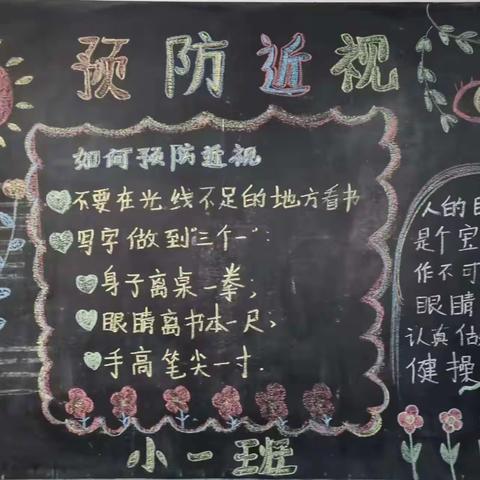 预防近视
如何预防近视
不要在光线不足的地方看书
写字做到"三个一":
身子离桌一拳;
眼睛离书本一尺;
手高笔尖一寸.
人的
是个宝
作不可
眼睛
认真做
健操
小一班